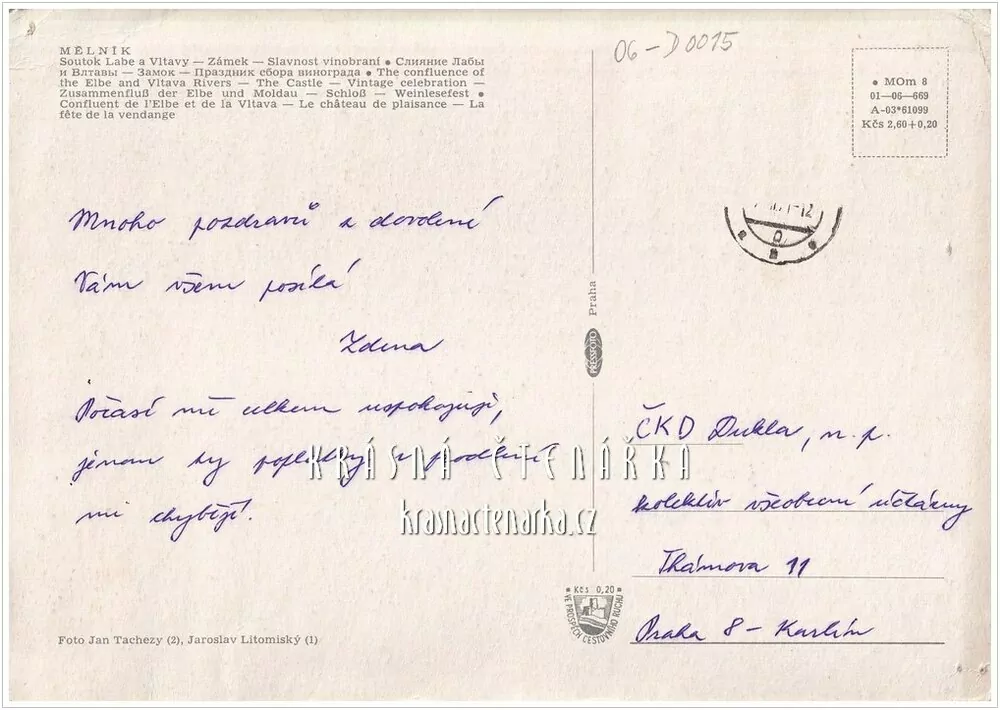 MĚLNÍK
Soutok Labe a Vltavy — Zámek — Slavnost vinobraní • Слияние Лабы
и Влтавы — Замок — Праздник сбора винограда • The confluence of
the Elbe and Vltava Rivers — The Castle — Vintage celebration —
Zusammenfluß der Elbe und Moldau — Schloß — Weinlesefest •
Confluent de l'Elbe et de la Vltava — Le château de plaisance — La
fête de la vendange
06-D0015
• MOm 8
01—06—669
A-03*61099
Kčs 2,60+0,20
Mnoho pozdravů z dovolené
Vám všem posílá
Zdena
Počasí mě celkem uspokojuje,
jenom ty poplatky
mi chybějí.
KRÁSNÁ ČTENÁŘKA
krasnactenarka.cz
Praha
PRESSFOTO
ČKD Dukla, n.p.
kolektiv všeobecné účtárny
Thámova 11
Praha 8 - Karlín
Kčs 0,20
VE PROSPĚCH CESTOVNÍHO RUCHU
Foto Jan Tachezy (2), Jaroslav Litomiský (1)